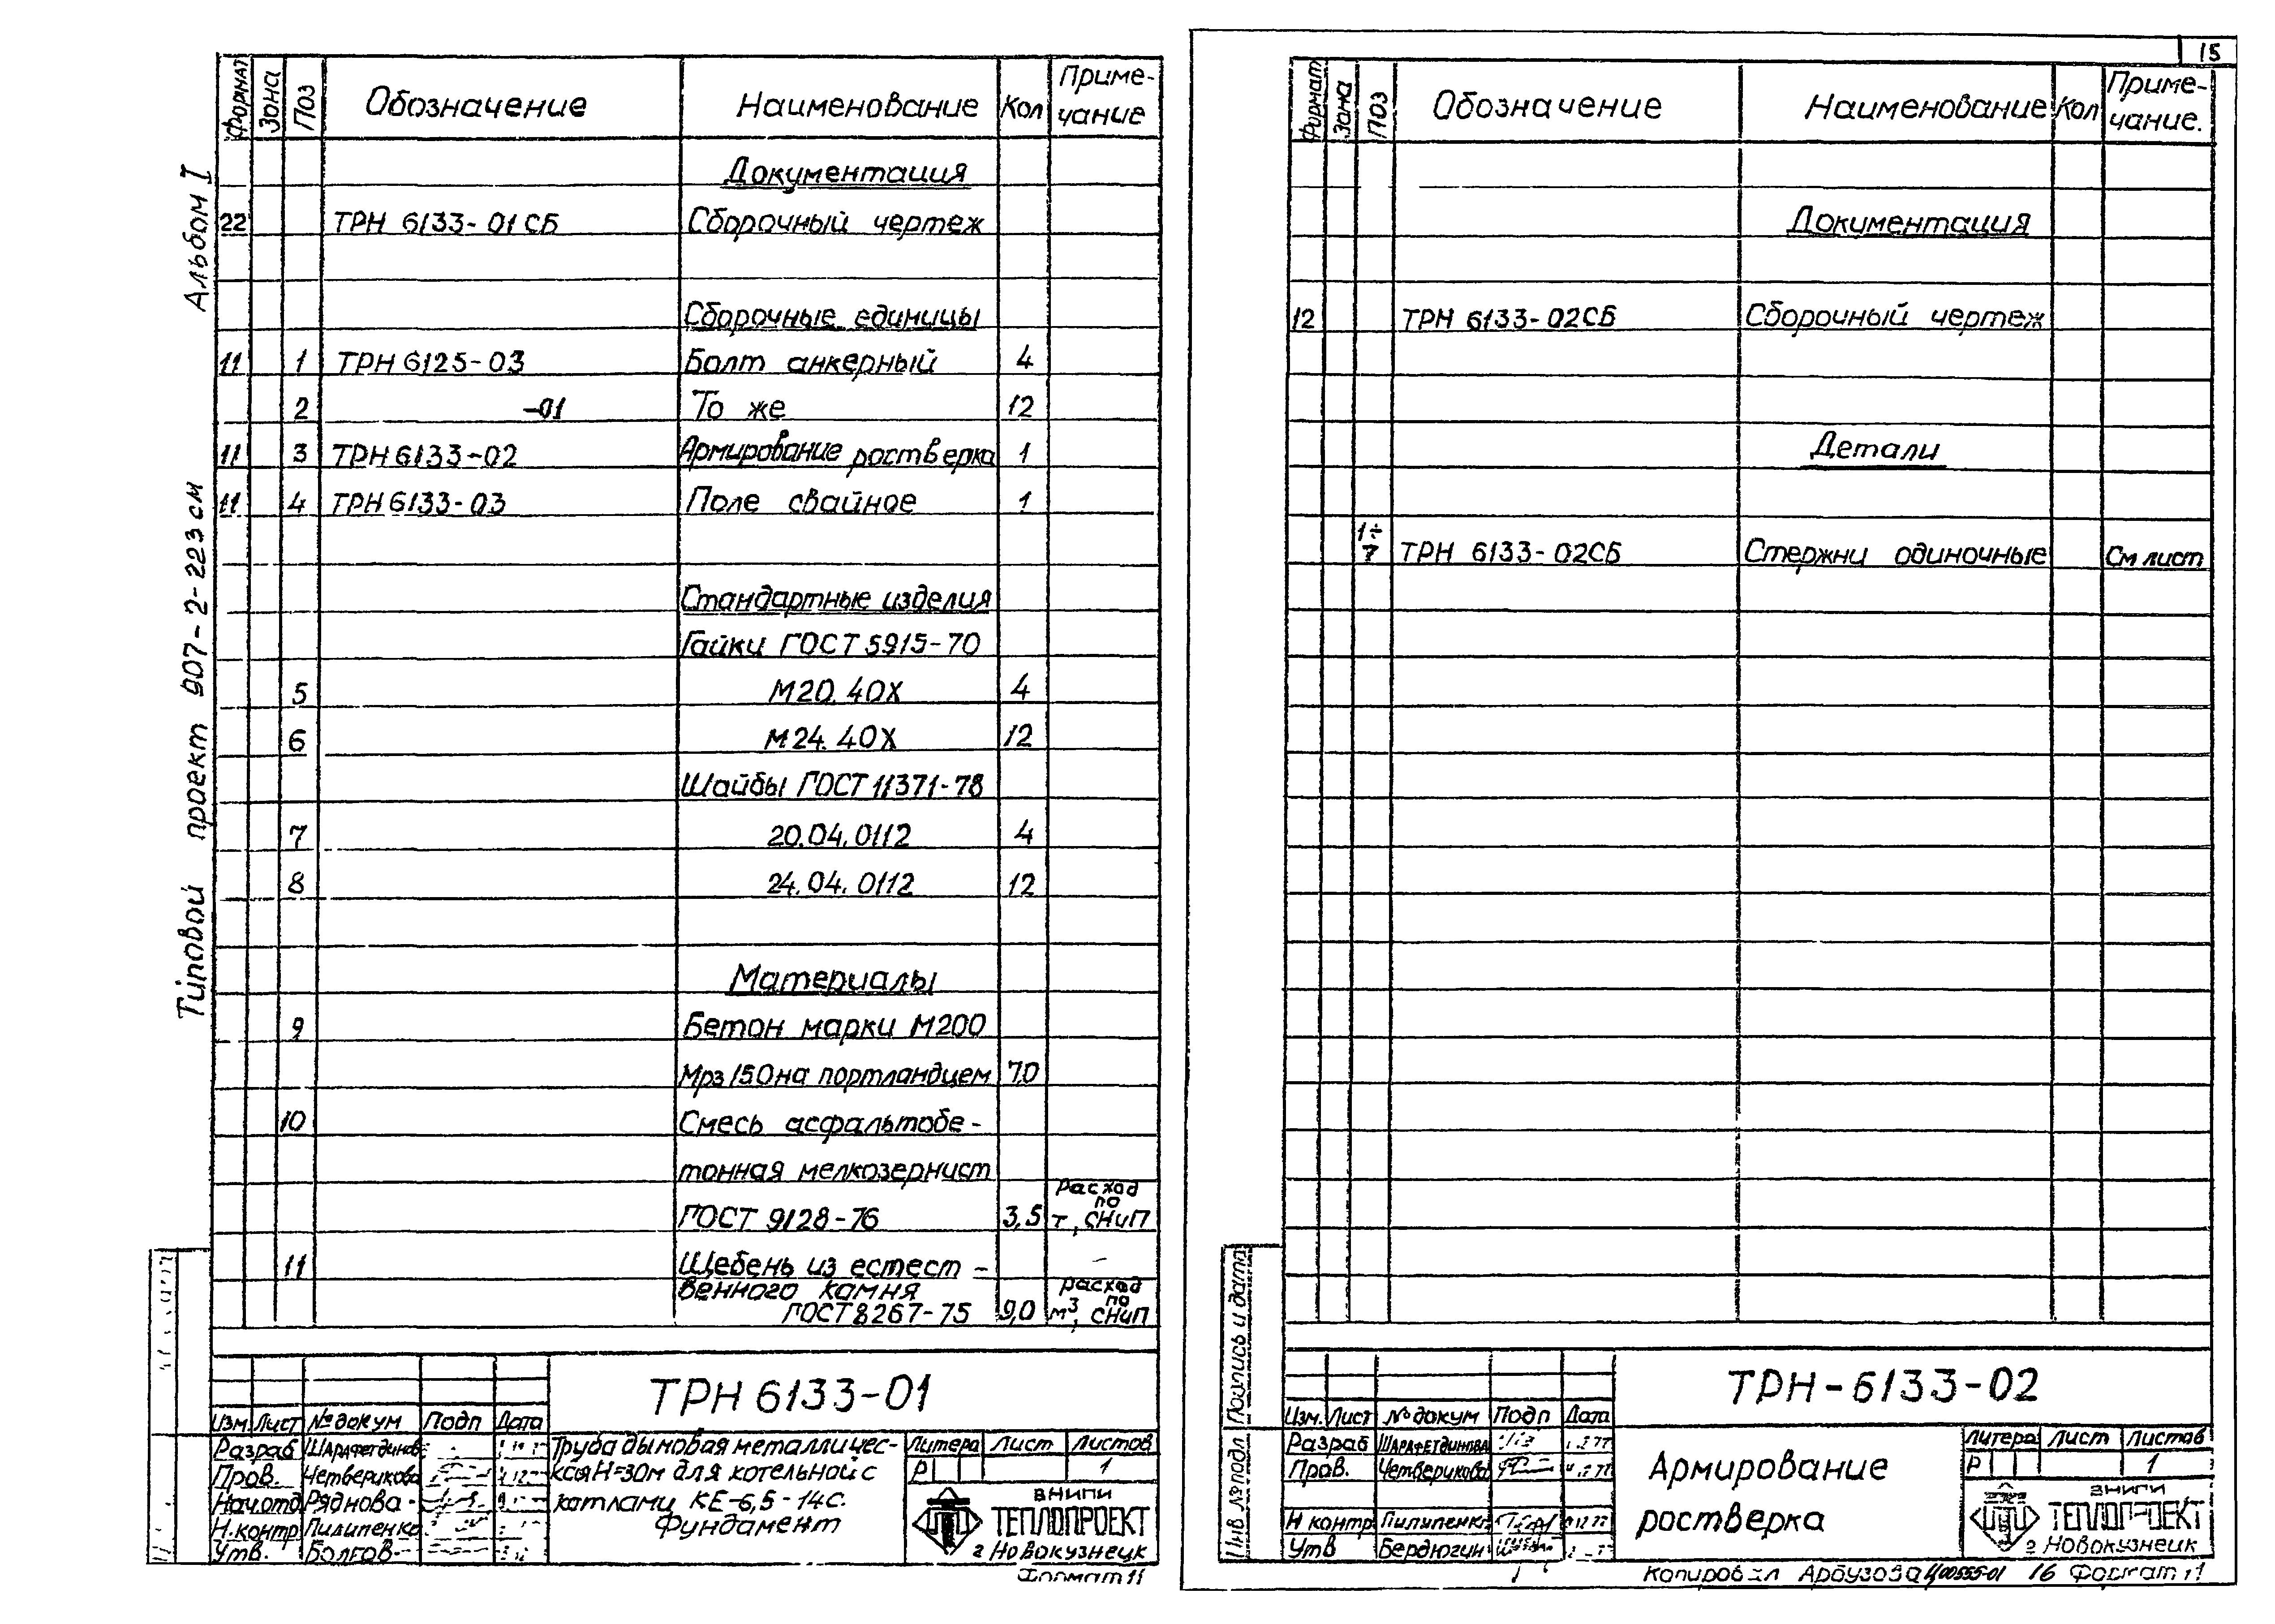 Альбом I
Типовой проект 907-2-223см
Формат Зона Поз Обозначение Наименование Кол Приме-
чание
Документация
22 ТРН 6133-01СБ Сборочный чертеж
Сборочные единицы
11 1 ТРН 6125-03 Болт анкерный 4
2 -01 То же 12
11 3 ТРН 6133-02 Армирование ростверка 1
11 4 ТРН 6133-03 Поле свайное 1
Стандартные изделия
Гайки ГОСТ 5915-70
5 М20.40Х 4
6 М24.40Х 12
Шайбы ГОСТ 11371-78
7 20.04.0112 4
8 24.04.0112 12
Материалы
9 Бетон марки М200
Мрз150на портландцем 7.0
10 Смесь асфальтобе-
тонная мелкозернист
ГОСТ 9128-76 3,5 т, расход по СНиП
11 Щебень из естест-
венного камня
ГОСТ 8267-75 9,0 м³, расход по СНиП
ТРН 6133-01
Изм. Лист №докум Подп Дата
Разраб Шарафетдинов
Пров. Четверикова
Нач.отд Ряднова
Н.контр Пилипенко
Утв. Болгов
Труба дымовая металличес-
кая Н=30м для котельной с
котлами КЕ-6,5-14с.
Фундамент
Литера Лист Листов
Р 1
ВНИПИ
ТЕПЛОПРОЕКТ
г Новокузнецк
Формат 11
15
Формат Зона Поз Обозначение Наименование Кол Приме-
чание.
Документация
12 ТРН 6133-02СБ Сборочный чертеж
Детали
1÷
7 ТРН 6133-02СБ Стержни одиночные См лист
Инв №подл Подпись и дата
ТРН-6133-02
Изм. Лист №докум Подп Дата
Разраб Шарафетдинова
Пров. Четверикова
Н контр Пилипенко
Утв Бердюгин
Армирование
ростверка
Литера Лист Листов
Р 1
ВНИПИ
ТЕПЛОПРОЕКТ
г Новокузнецк
Копировал Арбузова Ц00555-01 16 Формат 11